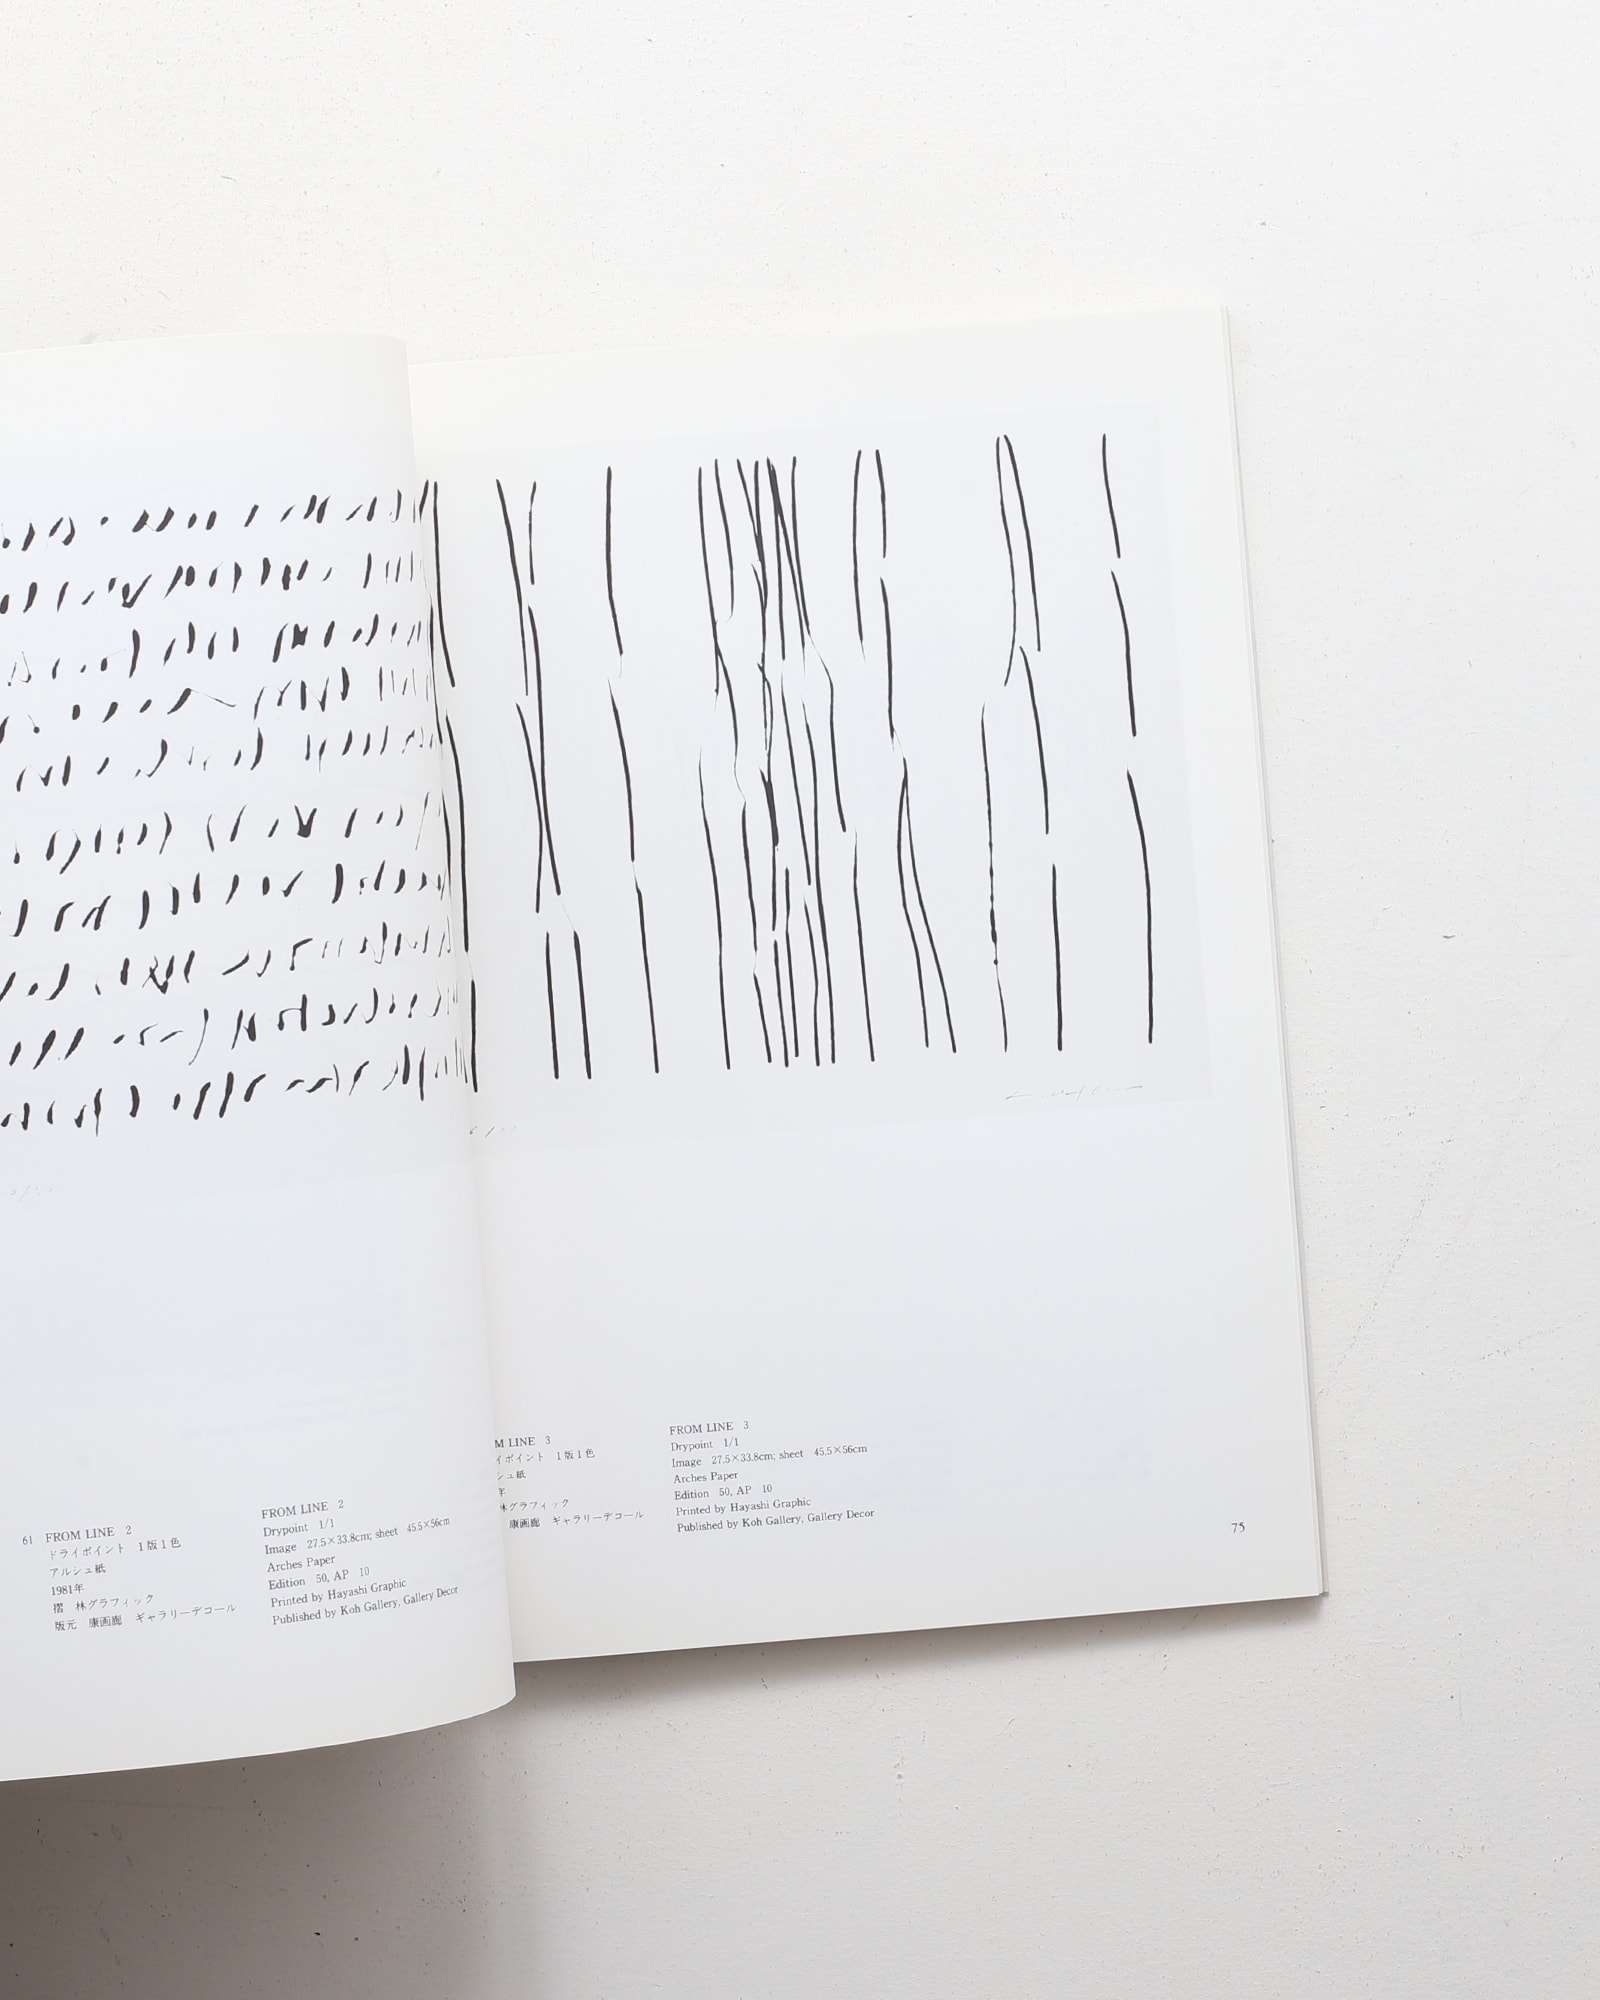 61 FROM LINE 2
ドライポイント 1版1色
アルシュ紙
1981年
摺 林グラフィック
版元 康画廊 ギャラリーデコール
FROM LINE 2
Drypoint 1/1
Image 27.5×33.8cm; sheet 45.5×56cm
Arches Paper
Edition 50, AP 10
Printed by Hayashi Graphic
Published by Koh Gallery, Gallery Decor
M LINE 3
イポイント 1版1色
シュ紙
年
林グラフィック
康画廊 ギャラリーデコール
FROM LINE 3
Drypoint 1/1
Image 27.5×33.8cm; sheet 45.5×56cm
Arches Paper
Edition 50, AP 10
Printed by Hayashi Graphic
Published by Koh Gallery, Gallery Decor
75